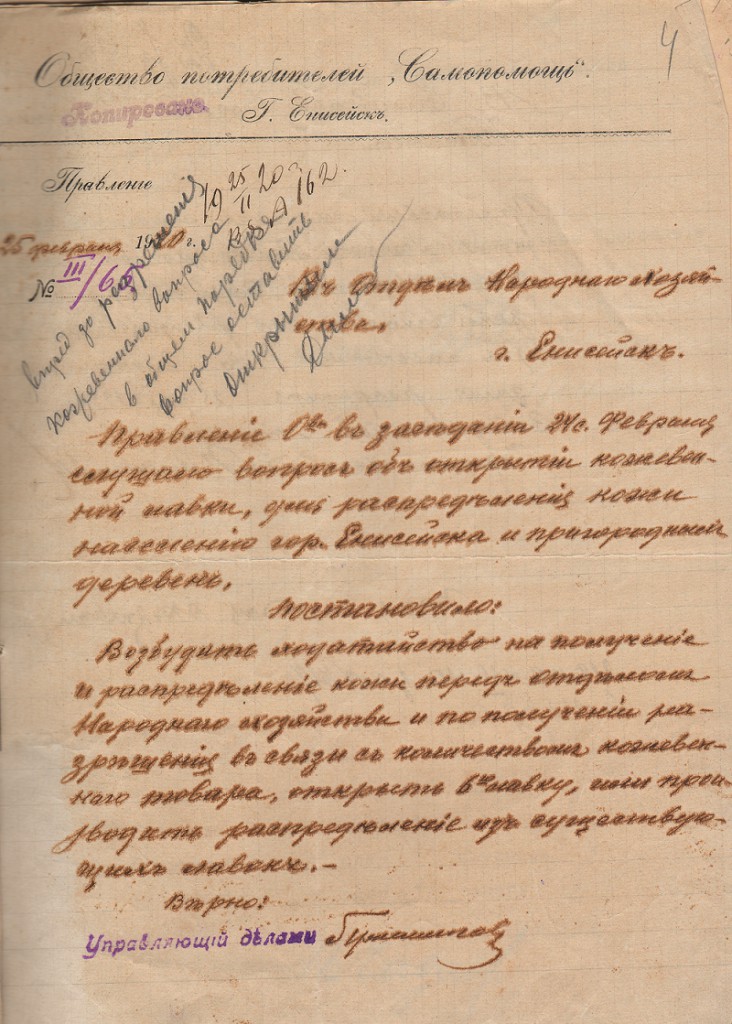 4
Общество потребителей „Самопомощь“.
Копировано
Г. Енисейскъ.
Правленіе
25 февраля 1920 г.
№ III/65
19 25/II 20
162.
впредь до разрешенія
кожевеннаго вопроса
в общем порядке
вопрос оставить
открытым
Въ Отдѣлъ Народнаго Хозяй-
ства.
г. Енисейскъ.
Правленіе О-ва въ засѣданіи 24 с. Февраля
слушало вопросъ объ открытіи кожевен-
ной лавки, для распредѣленія кожи
населенію гор. Енисейска и пригородный
деревень.
Постановило:
Возбудить ходатайство на полученіе
и распредѣленіе кожи передъ отдѣломъ
Народнаго хозяйства и по полученіи ра-
зрѣшенія въ связи съ количествомъ кожевен-
наго товара, открыть лавку, или прои-
зводить распредѣленіе изъ существую-
щихъ лавокъ.-
Вѣрно:
Управляющій дѣлами